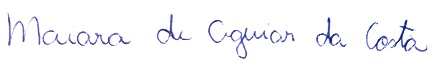 Maiara de Aguiar da Costa